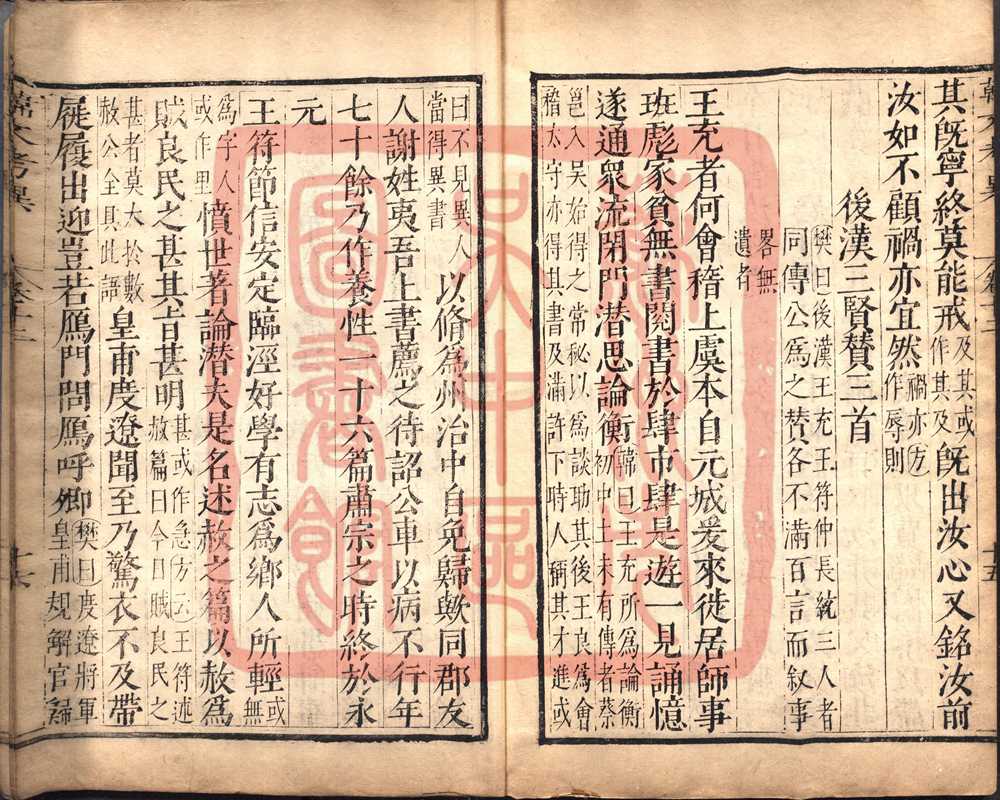 其既寧終莫能戒及其或作其及既出汝心又銘汝前
汝如不顧禍亦宜然禍亦方作辱則
後漢三賢贊三首
樊曰後漢王充王符仲長統三人者
同傳公爲之贊各不滿百言而叙事
畧無
遺者
王充者何會稽上虞本自元城爰來徙居師事
班彪家貧無書閱書於肆市肆是遊一見誦憶
遂通衆流閉門潛思論衡韓曰王充所爲論衡初中土未有傳者蔡
邕入吳始得之常秘以爲談助其後王良爲會
稽太守亦得其書及滿許下時人稱其才進或
曰不見異人
當得異書以脩爲州治中自免歸歟同郡友
人謝姓夷吾上書薦之待詔公車以病不行年
七十餘乃作養性一十六篇肅宗之時終於永
元
王符節信安定臨涇好學有志爲鄉人所輕或無
爲字人
或作里憤世著論潛夫是名述赦之篇以赦爲
賊良民之甚其旨甚明甚或作急方云王符述赦篇曰今日賊良民之
甚者莫大於數
赦公全具此語皇甫度遼聞至乃驚衣不及帶
屣履出迎豈若鴈門問鴈呼卿樊曰度遼將軍皇甫規解官歸
韓文考異
十五